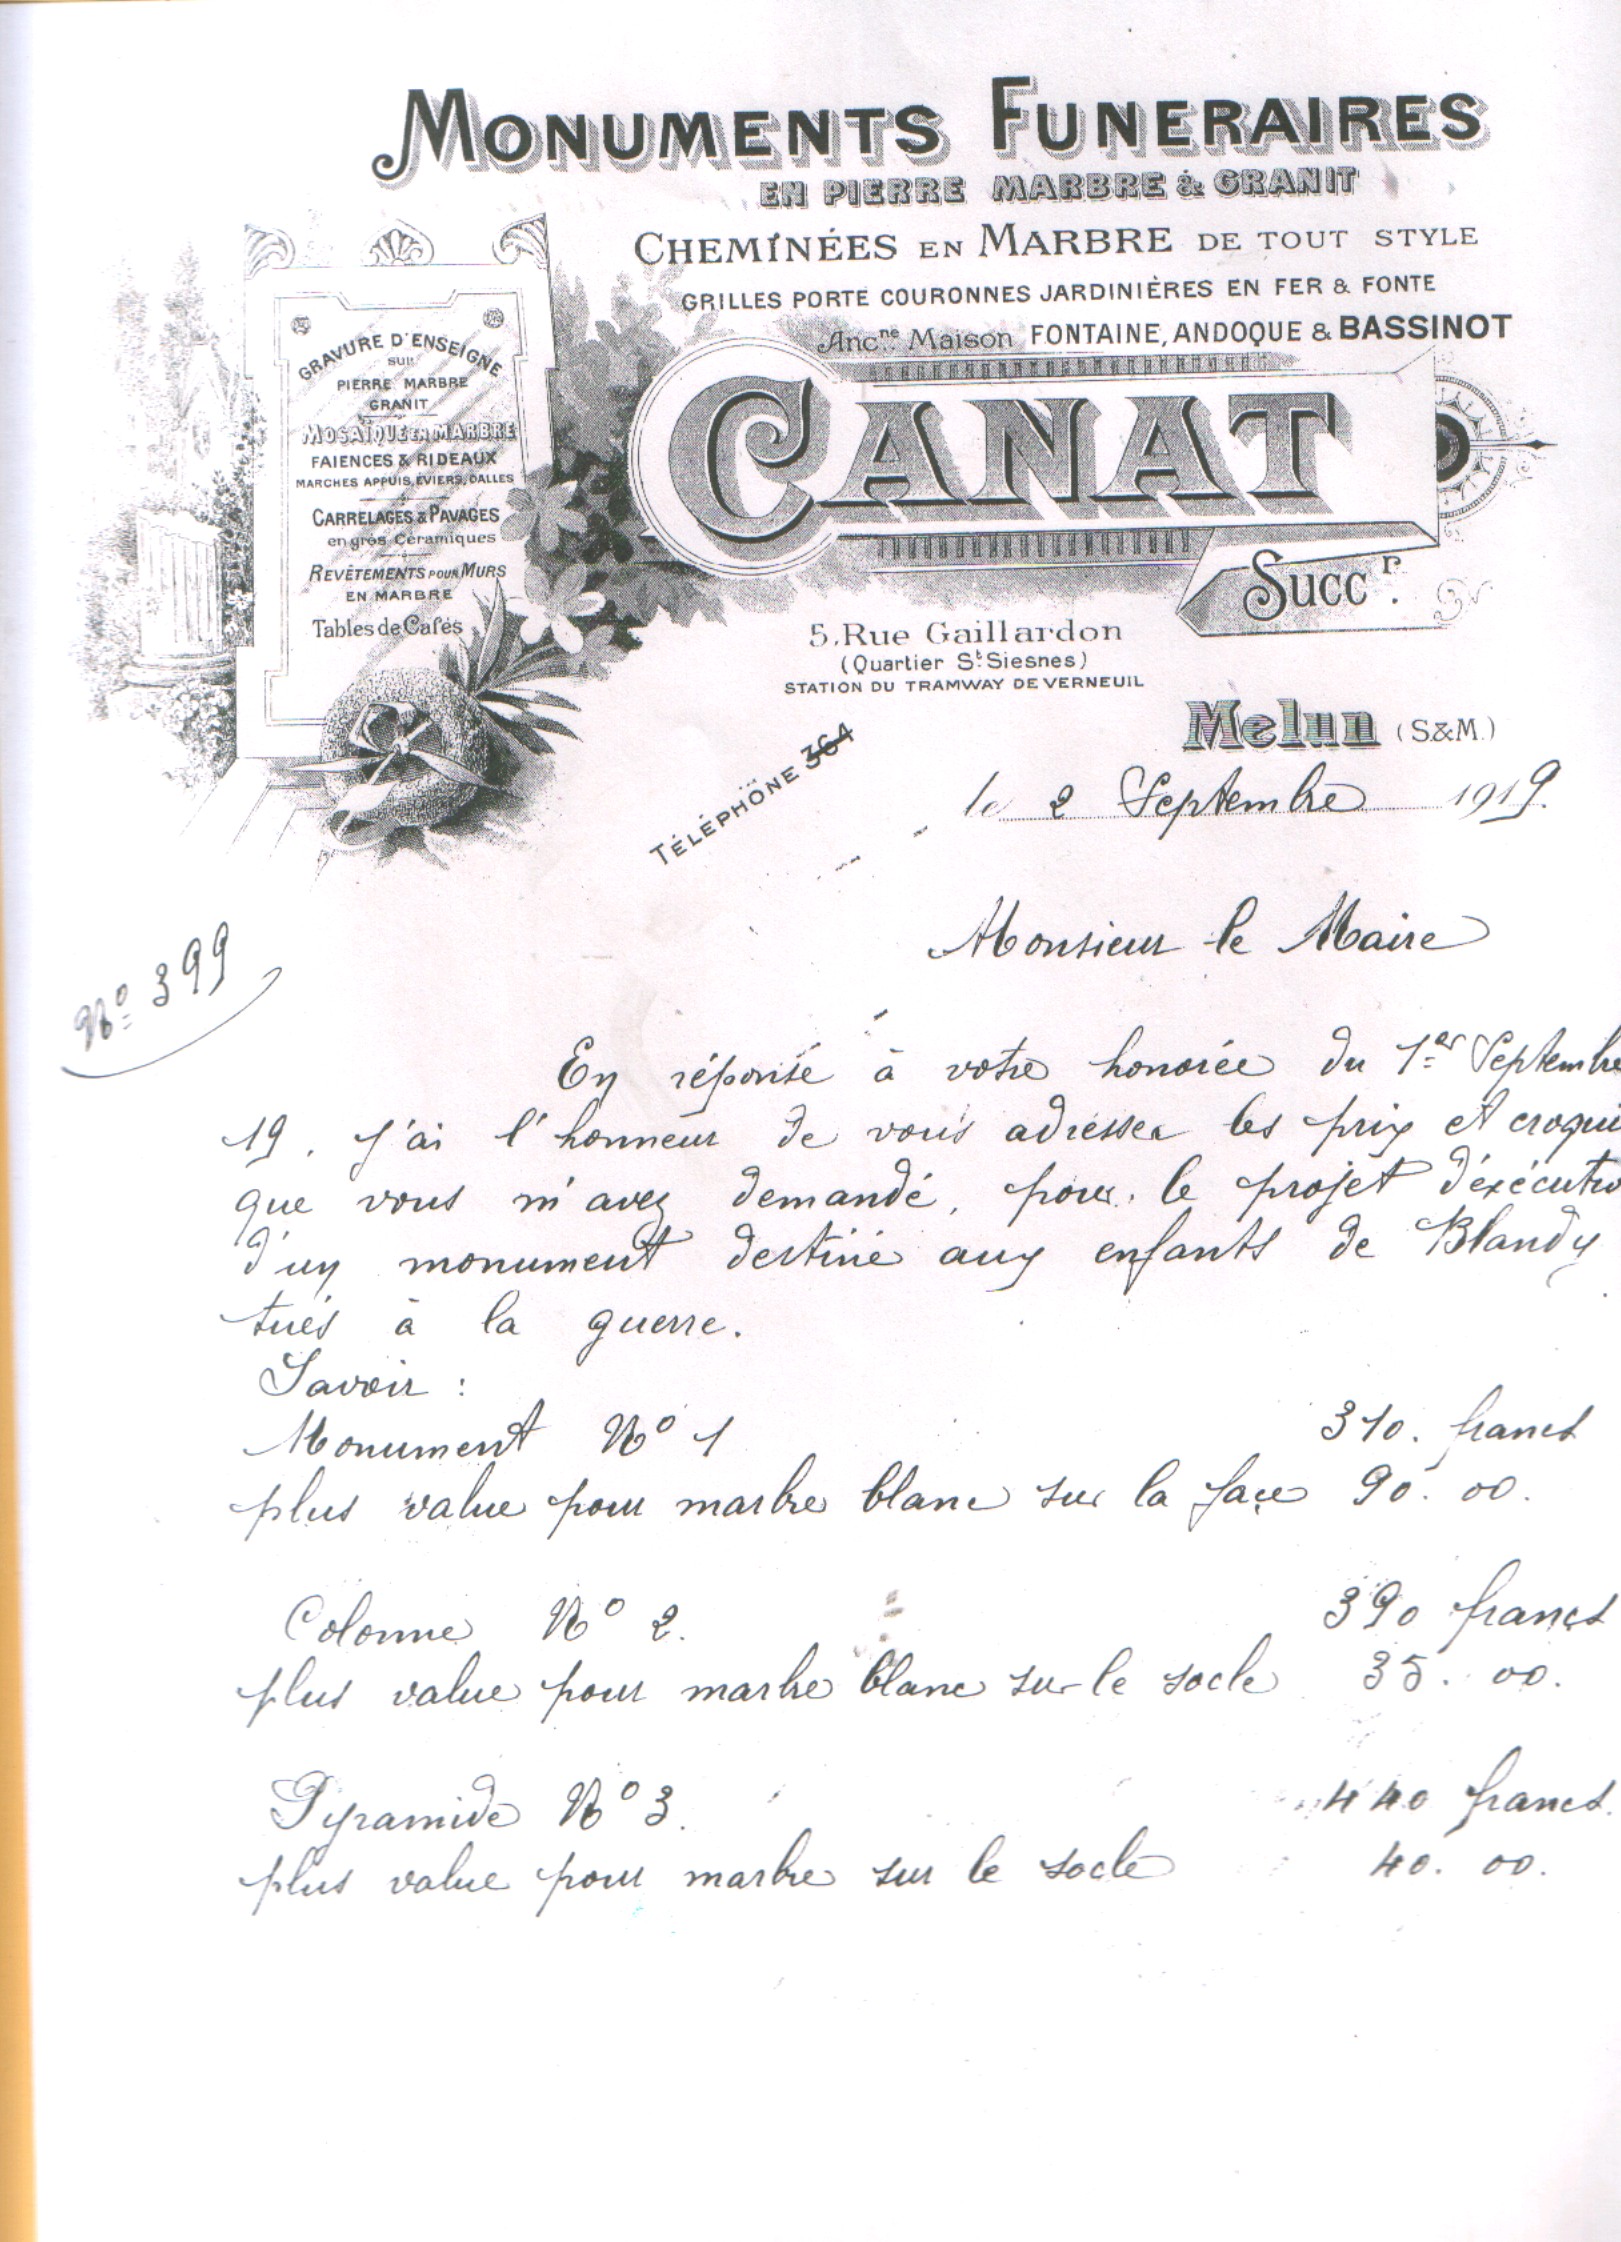 MONUMENTS FUNERAIRES
EN PIERRE MARBRE & GRANIT
CHEMINÉES EN MARBRE DE TOUT STYLE
GRILLES PORTE COURONNES JARDINIÈRES EN FER & FONTE
Anc.ne Maison FONTAINE, ANDOQUE & BASSINOT
CANAT
Succr.
GRAVURE D'ENSEIGNE
SUR
PIERRE MARBRE
GRANIT
MOSAÏQUE EN MARBRE
FAIENCES & RIDEAUX
MARCHES APPUIS, EVIERS, DALLES
CARRELAGES & PAVAGES
en grès Céramiques
REVÊTEMENTS POUR MURS
EN MARBRE
Tables de Cafés
5, Rue Gaillardon
(Quartier St Siesnes)
STATION DU TRAMWAY DE VERNEUIL
Melun (S&M.)
TÉLÉPHONE 364
le 2 Septembre 1919.
Monsieur le Maire
No 399
En réponse à votre honorée du 1er Septembre
19. j'ai l'honneur de vous adresser les prix et croqui
que vous m'avez demandé, pour le projet d'éxécutio
d'un monument destiné aux enfants de Blandy
tués à la guerre.
Savoir :
Monument No 1 310. francs
plus value pour marbre blanc sur la face 90. 00.
Colonne No 2. 390 francs
plus value pour marbre blanc sur le socle 35. 00.
Pyramide No 3. 440 francs.
plus value pour marbre sur le socle 40. 00.